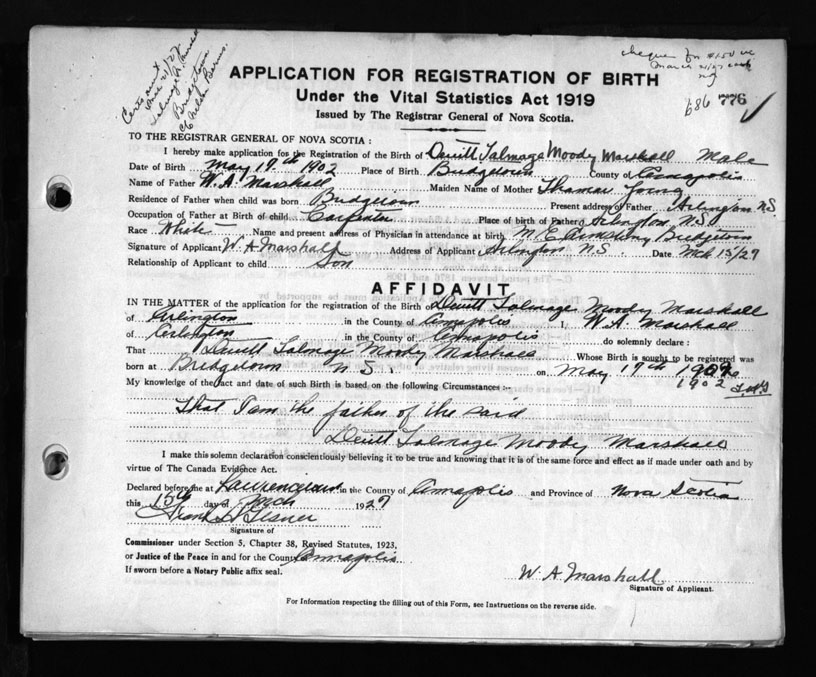 Cert sent
June 21/27
Talmage
Bridgetown
cheque for $1.50
APPLICATION FOR REGISTRATION OF BIRTH
Under the Vital Statistics Act 1919
Issued by The Registrar General of Nova Scotia.
686 776
TO THE REGISTRAR GENERAL OF NOVA SCOTIA :
I hereby make application for the Registration of the Birth of Dewitt Talmage Moody Marshall Male
Date of Birth May 19th 1902 Place of Birth Bridgetown County of Annapolis
Name of Father W. A. Marshall Maiden Name of Mother Thamar Young
Residence of Father when child was born Bridgetown Present address of Father Arlington N.S.
Occupation of Father at Birth of child Carpenter Place of birth of Father Arlington N.S.
Race White Name and present address of Physician in attendance at birth M. E. Armstrong Bridgetown
Signature of Applicant W. A Marshall Address of Applicant Arlington N.S. Date Mch 15/27
Relationship of Applicant to child Son
AFFIDAVIT
IN THE MATTER of the application for the registration of the Birth of Dewitt Talmage Moody Marshall
of Arlington in the County of Annapolis I, W. A. Marshall
of Arlington in the County of Annapolis do solemnly declare :
That Dewitt Talmage Moody Marshall Whose Birth is sought to be registered was
born at Bridgetown N.S. on May 19th
1902
My knowledge of the fact and date of such Birth is based on the following Circumstances :-
That I am the father of the said
Dewitt Talmage Moody Marshall
I make this solemn declaration conscientiously believing it to be true and knowing that it is of the same force and effect as if made under oath and by
virtue of The Canada Evidence Act.
Declared before me at Lawrencetown in the County of Annapolis and Province of Nova Scotia
this 15th day of Mch 1927
Signature of
Commissioner under Section 5, Chapter 38, Revised Statutes, 1923,
or Justice of the Peace in and for the County Annapolis
If sworn before a Notary Public affix seal.
W. A Marshall
Signature of Applicant.
For Information respecting the filling out of this Form, see Instructions on the reverse side.